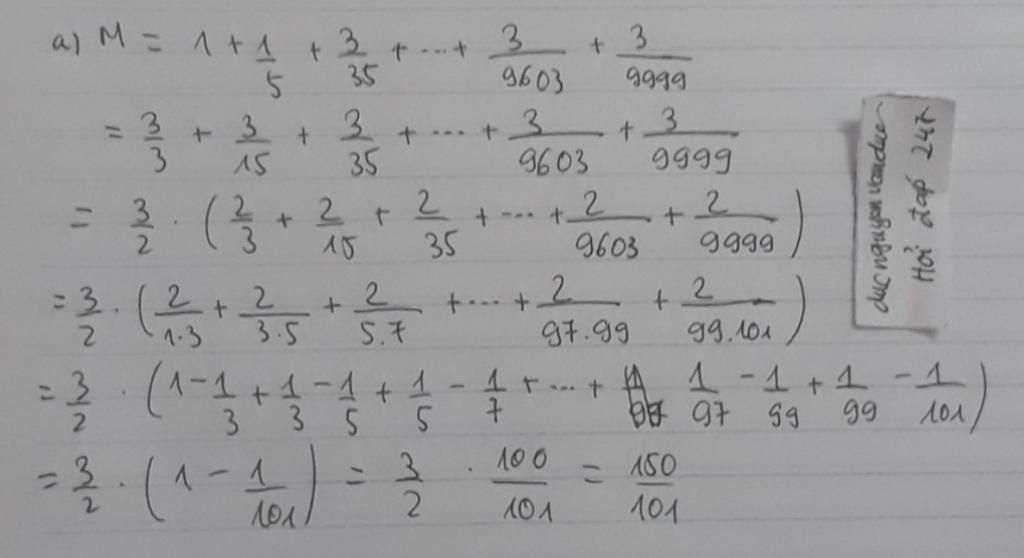 a) M = 1 + 1/5 + 3/35 + ... + 3/9603 + 3/9999
= 3/3 + 3/15 + 3/35 + ... + 3/9603 + 3/9999
= 3/2 . (2/3 + 2/15 + 2/35 + ... + 2/9603 + 2/9999)
= 3/2 . (2/1.3 + 2/3.5 + 2/5.7 + ... + 2/97.99 + 2/99.101)
= 3/2 . (1 - 1/3 + 1/3 - 1/5 + 1/5 - 1/7 + ... + 1/97 - 1/99 + 1/99 - 1/101)
= 3/2 . (1 - 1/101) = 3/2 . 100/101 = 150/101
ducnguyenvanduc
Hỏi đáp 247